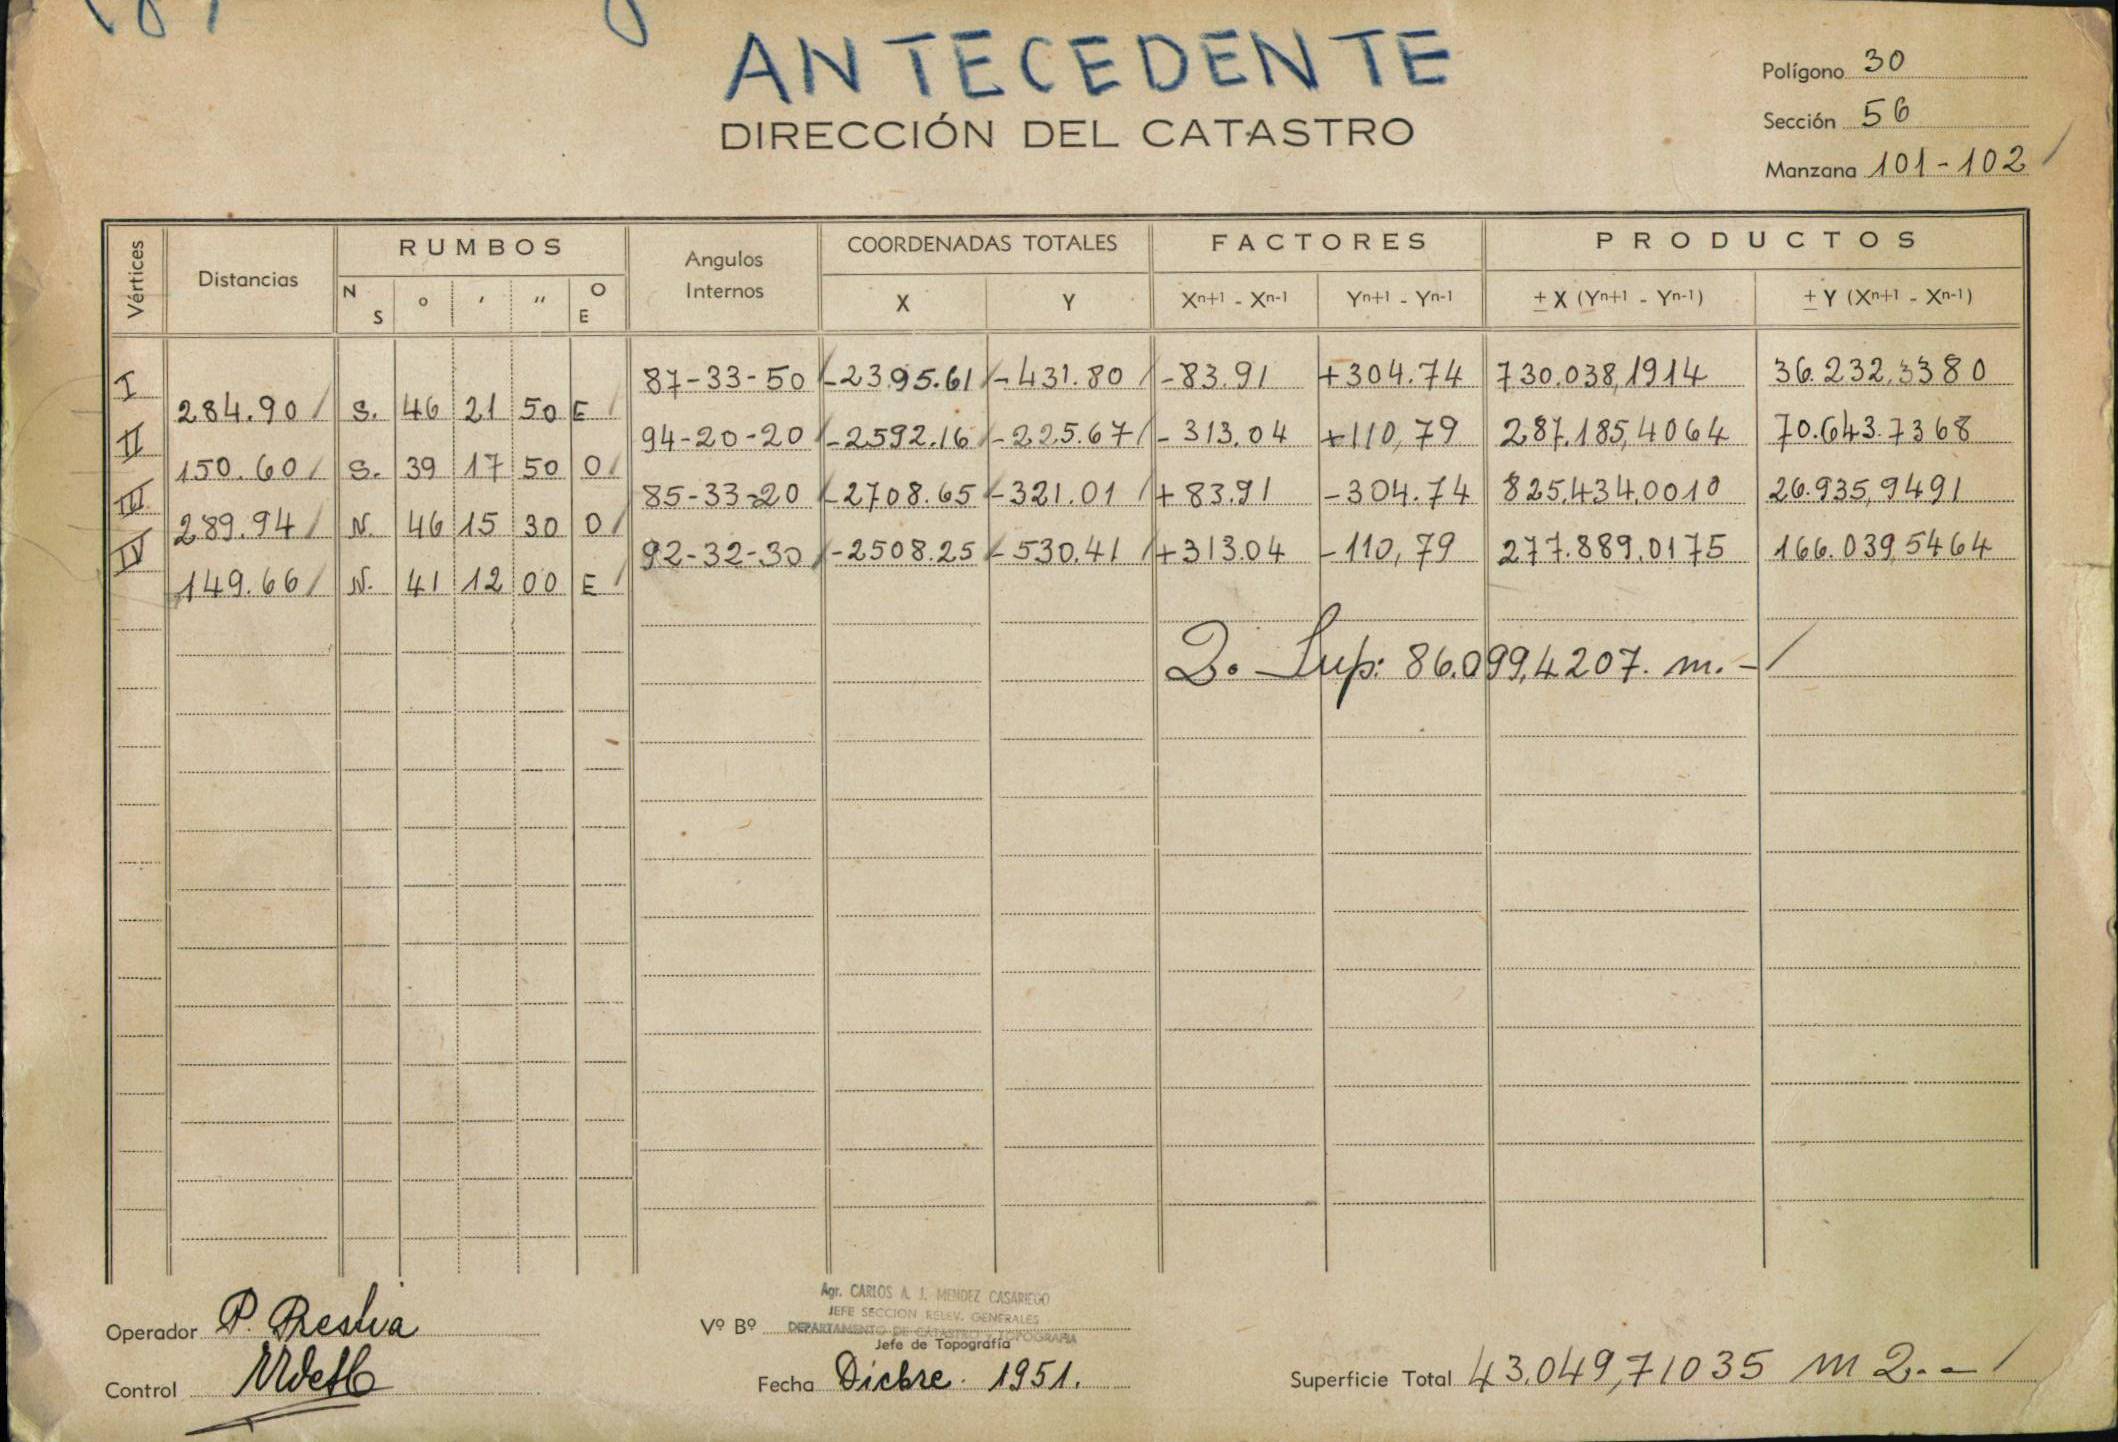 ANTECEDENTE
DIRECCIÓN DEL CATASTRO
Polígono 30
Sección 56
Manzana 101-102
Vértices Distancias RUMBOS Angulos Internos COORDENADAS TOTALES FACTORES PRODUCTOS
N S ° ' " O E X Y Xn+1 - Xn-1 Yn+1 - Yn-1 ± X (Yn+1 - Yn-1) ± Y (Xn+1 - Xn-1)
I 87-33-50 -2395.61 -431.80 -83.91 +304.74 730.038,1914 36.232,3380
284.90 S. 46 21 50 E
II 94-20-20 -2592.16 -225.67 -313.04 +110,79 287.185,4064 70.643.7368
150.60 S. 39 17 50 O
III 85-33-20 -2708.65 -321.01 +83.91 -304.74 825.434,0010 26.935,9491
289.94 N. 46 15 30 O
IV 92-32-30 -2508.25 -530.41 +313.04 -110,79 277.889,0175 166.039,5464
149.66 N. 41 12 00 E
2. Sup: 86.099,4207. m.-
Operador P. Prestia
Control
Vº Bº
Agr. CARLOS A. J. MENDEZ CASARIEGO
JEFE SECCION RELEV. GENERALES
DEPARTAMENTO DE CATASTRO Y TOPOGRAFIA
Jefe de Topografía
Fecha Dicbre. 1951.
Superficie Total 43.049,71035 m 2.-